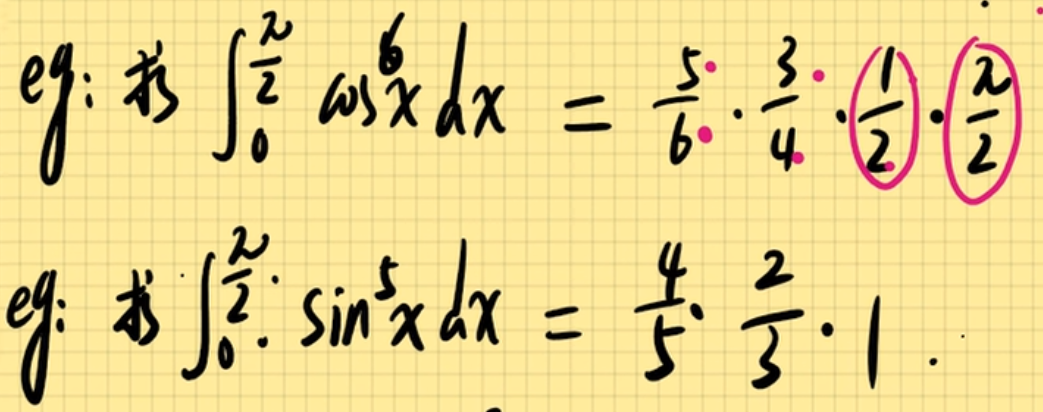 eg: 求 ∫₀^{π/2} cos⁶x dx = 5/6 · 3/4 · 1/2 · π/2
eg: 求 ∫₀^{π/2} sin⁵x dx = 4/5 · 2/3 · 1